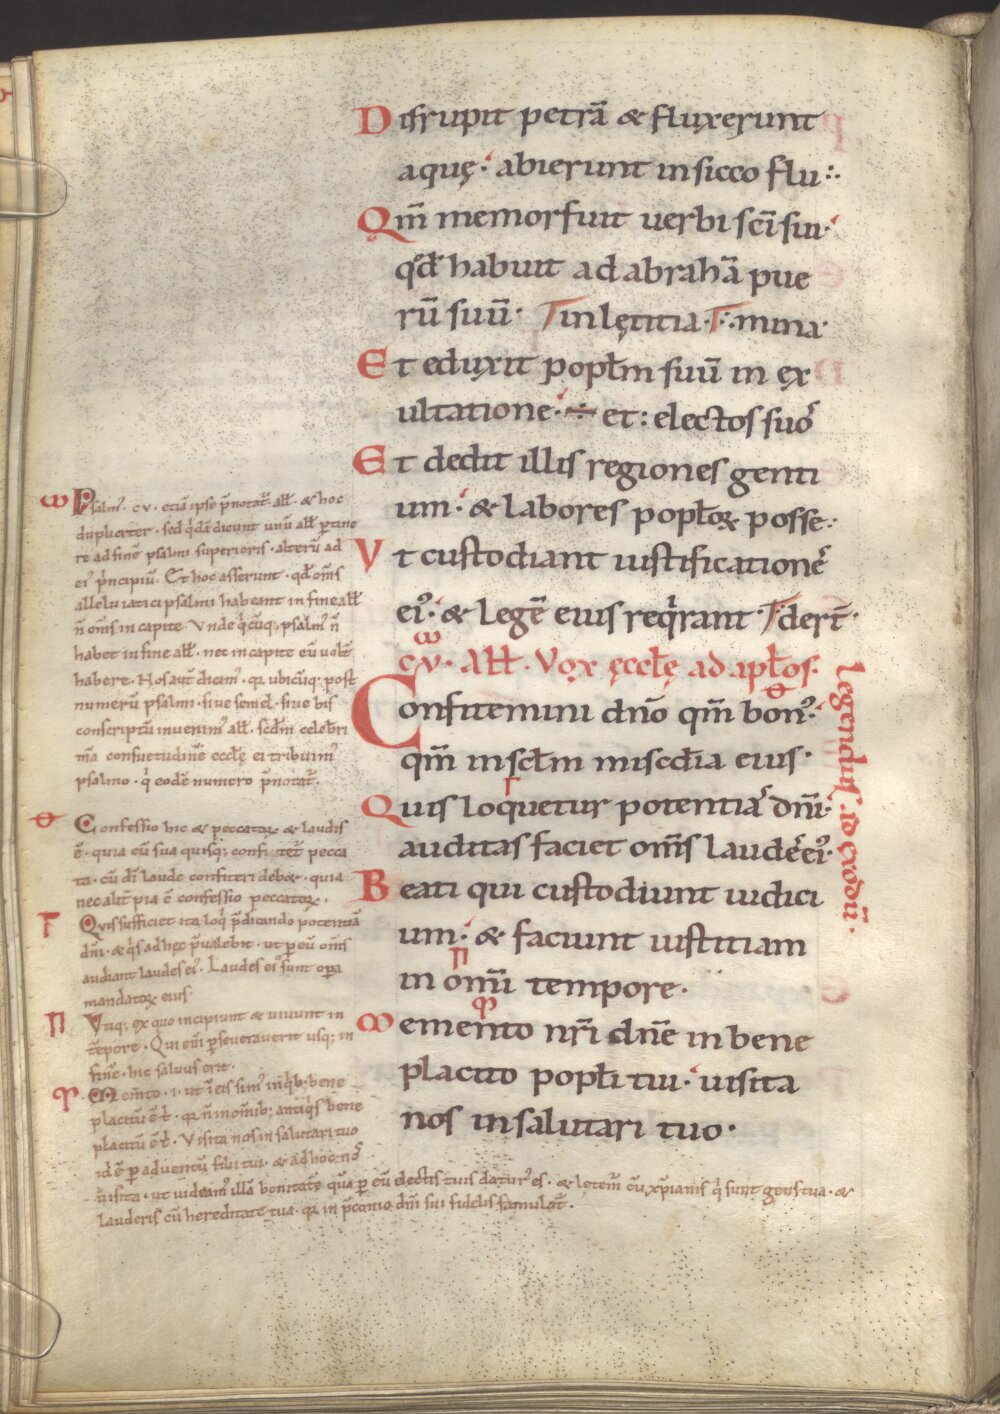 Disrupit petrā & fluxerunt
aquę· abierunt insicco flu
Qm̄ memorfuit uerbi scī sui·
qd̄ habuit adabrahā pue
rū suū· inlętitia· mina·
Et eduxit popłm suū in ex
ultatione· ÷ et: electos suos
Et dedit illis regiones genti
um· & labores popłoꝝ posse
Vt custodiant iustificationē
eiꝰ· & legē eius reqirant dert̄·
ω
cv· Ałł· Vox ęccłę ad apłos·
Confitemini dnō qm̄ bonꝰ·
qm̄ insc̄łm misc̄dia eius·
Quis loquetur potentias dnī·
auditas faciet om̄s laudes eiꝰ·
Beati qui custodiunt iudici
um· & faciunt iustitiam
in omni tempore·
Memento nr̄i dnē in bene
placito popłi tui· uisita
nos insalutari tuo·
legendus· ło exodū·
ω Psalmꝰ· cv· etiā ipse p̄notat̄ ałł· & hoc
dupliciter· sed qdā dicunt unū ałł ptine
re adfinē psalmi superioris· alterū ad
eiꝰ p̄ncipiū· Et hoc asserunt· qd̄ om̄s
alleluiatici psalmi habeant infine ałł
n̄ om̄s incapite· Vnde qcūq; psalmꝰ n̄
habet infine ałł· nec incapite eū uolt̄
habere· Nos aut̄ dicimꝰ· qꝛ ubicūq; post
numerū psalmi· siue semel· siue bis
conscriptū inuenimꝰ ałł· scd̄m celebri
mā consuetudinē ecclę ei tribuimꝰ
psalmo· q eodē numero p̄notat̄·
Confessio hic & peccatoꝝ & laudis
ē· quia cū sua quisq; confitet̄ pecca
ta· cū dī laude confiteri debet· quia
nec alit̄ pia ē confessio peccatoꝝ·
Γ Quis sufficiet ita loq p̄dicando potentiā
dnī· & qs adhęc p̄ualebit· ut p eū om̄s
audiant laudes eiꝰ· Laudes eiꝰ sunt opa
mandatoꝝ eius
Π Vtiq; ex quo incipiunt & uiuunt in
tēpore· Qui eni pseuerauerit usq; in
finē· hic saluus erit·
Mem̄to· i· ut ī eis simꝰ inqb; bene
placitū ē t̄· qꝛ n̄ inomīb; antiqs bene
placitū ē t̄· Visita nos in salutari tuo
id ē p aduentū filii tui· & adhoc nos
uisita· ut uideamꝰ illā bonitatē quā p eū electis tuis daturꝰ es· & lętem̄ cū xp̄ianis q sunt gens tua· &
lauderis cū hereditate tua· qꝛ in p̄conio dnī sui fidelis famulat̄·